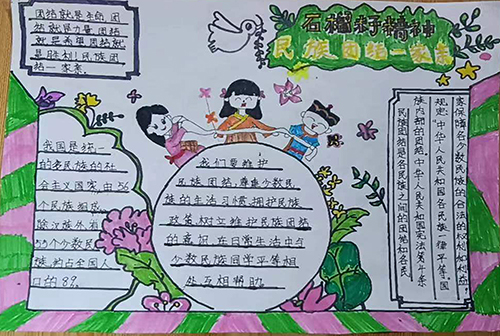 团结就是生命 团
结就是力量团结
就是希望团结就
是胜利民族团
结一家亲
石榴籽
民族团结一家亲
我国是统一
的多民族的社
会主义国家,由56
个民族组成
除汉族外有
55个少数民
族,约占全国人
口的8.9
我们要维护
民族团结,尊重少数民
族的生活习惯,拥护民族
政策,树立维护民族团结
的意识,在日常生活中与
少数民族同学平等相
处互相帮助。
民族团结是各民族之间的团结和各民
族内部的团结。中华人民共和国宪法第4条
规定“中华人民共和国各民族一律平等”国
家保障各少数民族的合法的权利和利益。